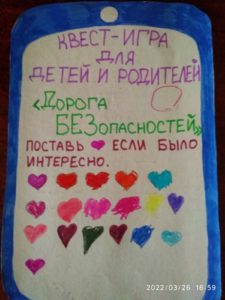 КВЕСТ-ИГРА
ДЛЯ
ДЕТЕЙ И РОДИТЕЛЕЙ
«ДОРОГА
БЕЗОПАСНОСТЕЙ»
ПОСТАВЬ ❤ ЕСЛИ БЫЛО
ИНТЕРЕСНО.
2022/03/26 16:59